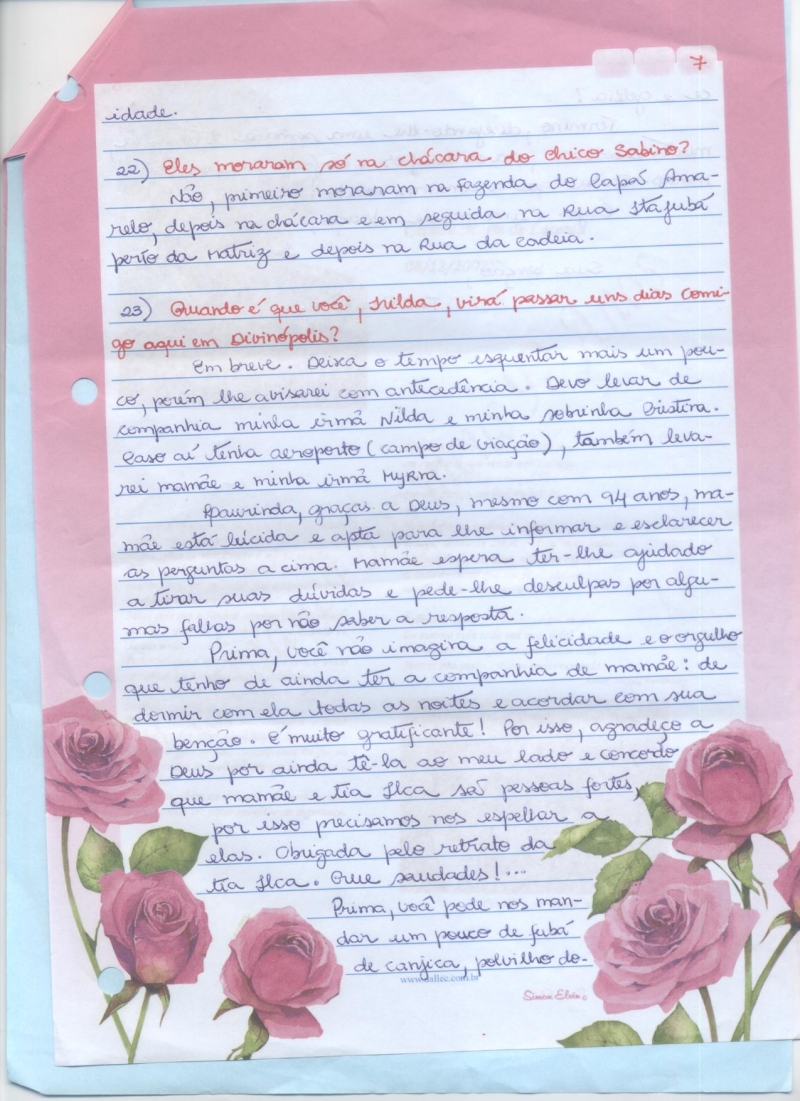 7
idade.
22) Eles moraram só na chácara do Chico Sabino?
Não, primeiro moraram na Fazenda do Capá Ama-
relo, depois na chácara e em seguida na Rua Itajubá
perto da Matriz e depois na Rua da Cadeia.
23) Quando é que você, Hilda, virá passar uns dias comi-
go aqui em Divinópolis?
Em breve. Deixa o tempo esquentar mais um pou-
co, porém lhe avisarei com antecedência. Devo levar de
companhia minha irmã Nilda e minha sobrinha Cristina.
Caso aí tenha aeroporto (campo de viação), também leva-
rei mamãe e minha irmã Myrna.
graças a Deus, mesmo com 94 anos, ma-
mãe está lúcida e apta para lhe informar e esclarecer
as perguntas a cima. Mamãe espera ter-lhe ajudado
a tirar suas dúvidas e pede-lhe desculpas por algu-
mas faltas por não saber a resposta.
Prima, você não imagina a felicidade e o orgulho
que tenho de ainda ter a companhia de mamãe: de
dormir com ela todas as noites e acordar com sua
benção. É muito gratificante! Por isso, agradeço a
Deus por ainda tê-la ao meu lado e concordo
que mamãe e tia Ilca são pessoas fortes,
por isso precisamos nos espelhar a
elas. Obrigada pelo retrato da
tia Ilca. Que saudades!...
Prima, você pode nos man-
dar um pouco de fubá
de canjica, polvilho do-